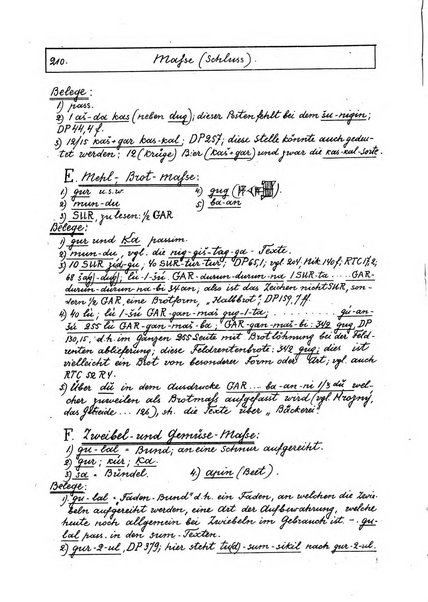 210. Maße (Schluss).
Belege:
1) pass.
2) 1 aš-da kas (neben dug); dieser Posten fehlt bei dem šu-nigin;
DP 44, 4 f.
3) 12/15 kaš+gar kas-kal; DP 257; diese Stelle könnte auch gedeu-
tet werden: 12 (Krüge) Bier (kaš+gar) und zwar die kas-kal-Sorte.
E. Mehl-, Brot-Maße:
1) gur u.s.w. 4) gug
2) mun-du 5) ba-an
3) SUR, zu lesen: ½ GAR
Belege:
1) gur und Ka passim.
2) mun-du, vgl. die nig-giš-tag-ga-Texte.
3) 10 SUR zid-gu; 40 SUR tur-tur; DP 65,1; vgl. 204. Nik 140 f. RTC
68 lú-1-šú GAR-durun-durun-na 1 SUR-ta .... GAR-
durun-durun-na-bi 34 an; also ist das Zeichen nicht SUR, son-
dern ½ GAR, eine Brotform, „Halbbrot", DP 159, 7 ff.
4) 40 lú; lú 1-šú GAR-gan-maš gug-1-ta; .... gú-an-
šú 255 lú GAR-gan-maš-ba; GAR-gan-maš-bi: 342 gug, DP
130, 15. d.h. im Ganzen 255 Leute mit Brotlöhnung bei der Feld-
renten ablieferung; diese Feldrentenbrote: 342 gug; dies ist
vielleicht ein Brot von besonderer Form oder Art; vgl. auch
RTC 52 R 4.
5) Über du in dem Ausdrucke GAR ... ba-an-ni 1/3 du wel-
cher zuweilen als Brotmaß aufgefaßt wird (vgl. Hrozný,
das Getreide ... 124), sh. die Texte über „Bäckerei"
F. Zwiebel- und Gemüse-Maße:
1) gu-lal = Bund; an eine Schnur aufgereiht.
2) gur; kur; Ka.
3) sa = Bündel. 4) apin (Beet).
Belege:
1) gu-lal = „Faden-Bund" d.h. ein Faden, an welchen die Zwie-
beln aufgereiht werden, eine Art der Aufbewahrung, welche
heute noch allgemein bei Zwiebeln im Gebrauch ist. - gu-
lal pass. in den sum-Texten.
2) gur-2-ul, DP 379; hier steht -sum-sikil nach gur-2-ul.